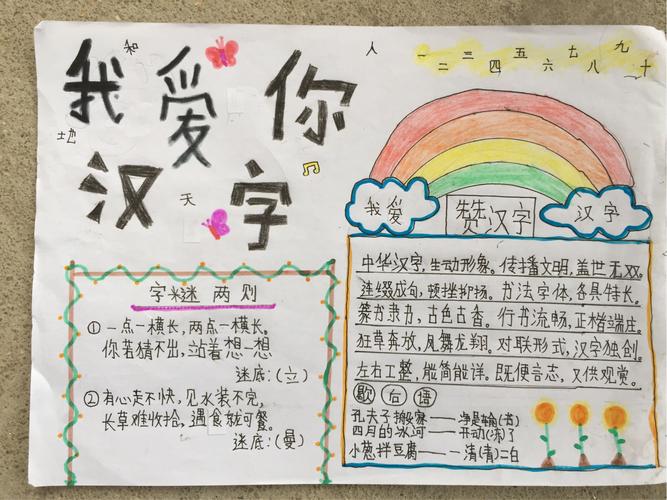 我爱你
汉字
和
地
天
人
一二三四五六七八九十
字谜两则
①一点一横长，两点一横长。
你若猜不出，站着想一想
谜底：（立）
②有心走不快，见水装不完，
长草难收拾，遇食就可餐。
谜底：（曼）
我爱
赞汉字
汉字
中华汉字，生动形象。传播文明，盖世无双。
连缀成句，顿挫抑扬。书法字体，各具特长。
篆书隶书，古色古香。行书流畅，正楷端庄。
狂草奔放，凤舞龙翔。对联形式，汉字独创。
左右工整，能简能详。既便言志，又供观赏。
歇后语
孔夫子搬家——净是输（书）
四月的冰河——开动（冻）了
小葱拌豆腐——一清（青）二白